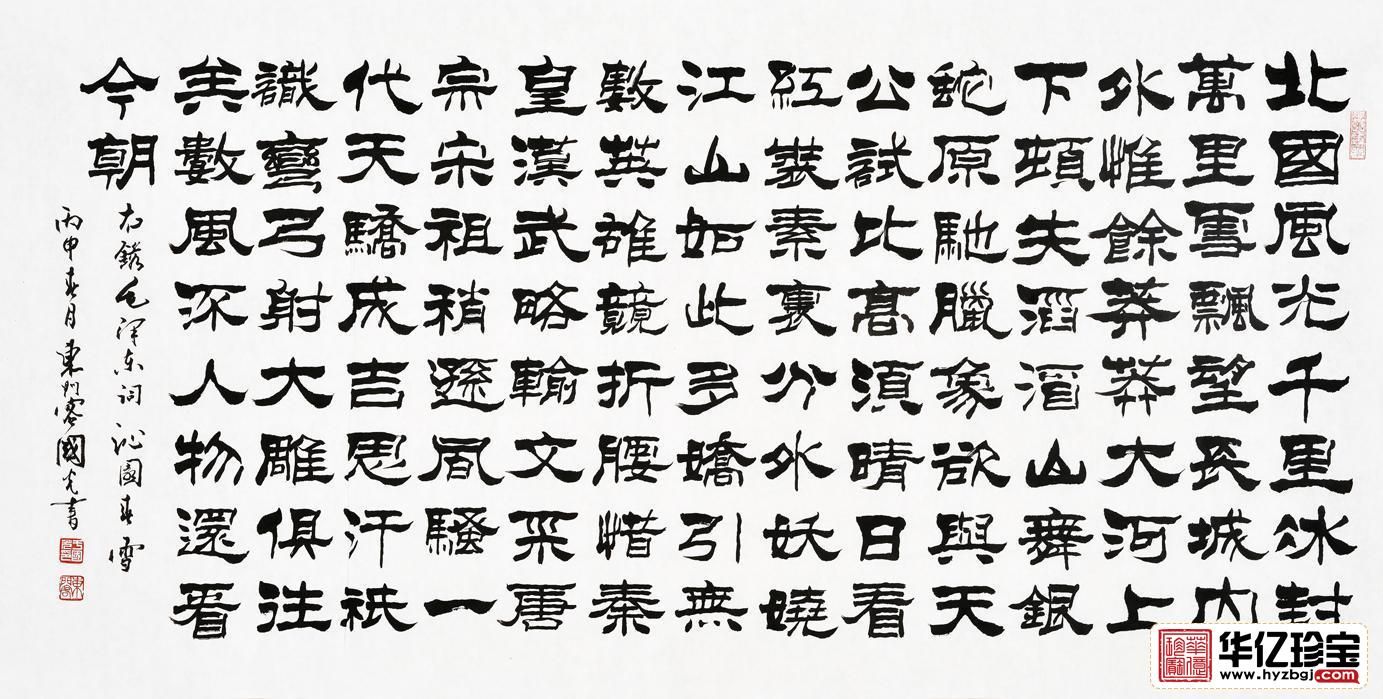 北國風光千里冰封
萬里雪飄望長城內
外惟餘莽莽大河上
下頓失滔滔山舞銀
蛇原馳臘象欲與天
公試比高須晴日看
紅裝素裹分外妖嬈
江山如此多嬌引無
數英雄競折腰惜秦
皇漢武略輸文采唐
宗宋祖稍遜風騷一
代天驕成吉思汗祇
識彎弓射大雕俱往
矣數風流人物還看
今朝
右錄毛澤東詞沁園春雪
丙申春月東門客國光書
华亿珍宝
www.hyzbgj.com